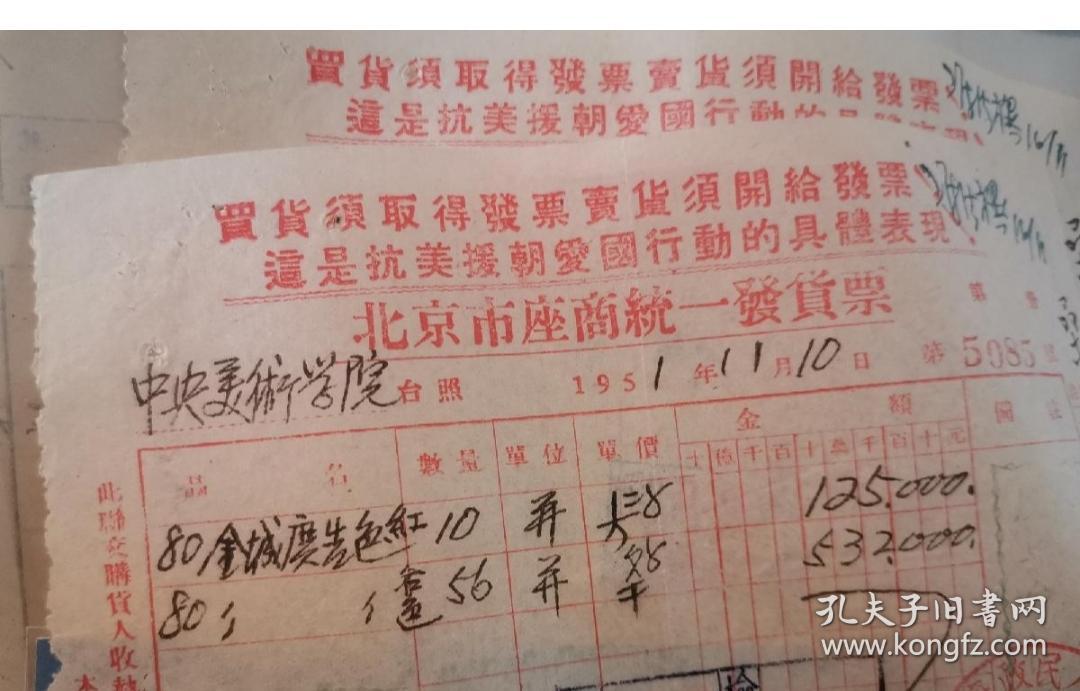 買貨須取得發票賣貨須開給發票
這是抗美援朝愛國行動的具
買貨須取得發票賣貨須開給發票
這是抗美援朝愛國行動的具體表現
北京市座商統一發貨票
第 冊
中央美術学院台照
1951年11月10日
第5085號
品名 數量 單位 單價 金額 備註
十億千百十萬千百十元
80金城廣告色紅 10 125.000.
80 56 532.000.
此聯交購貨人收執
孔夫子旧书网
www.kongfz.com